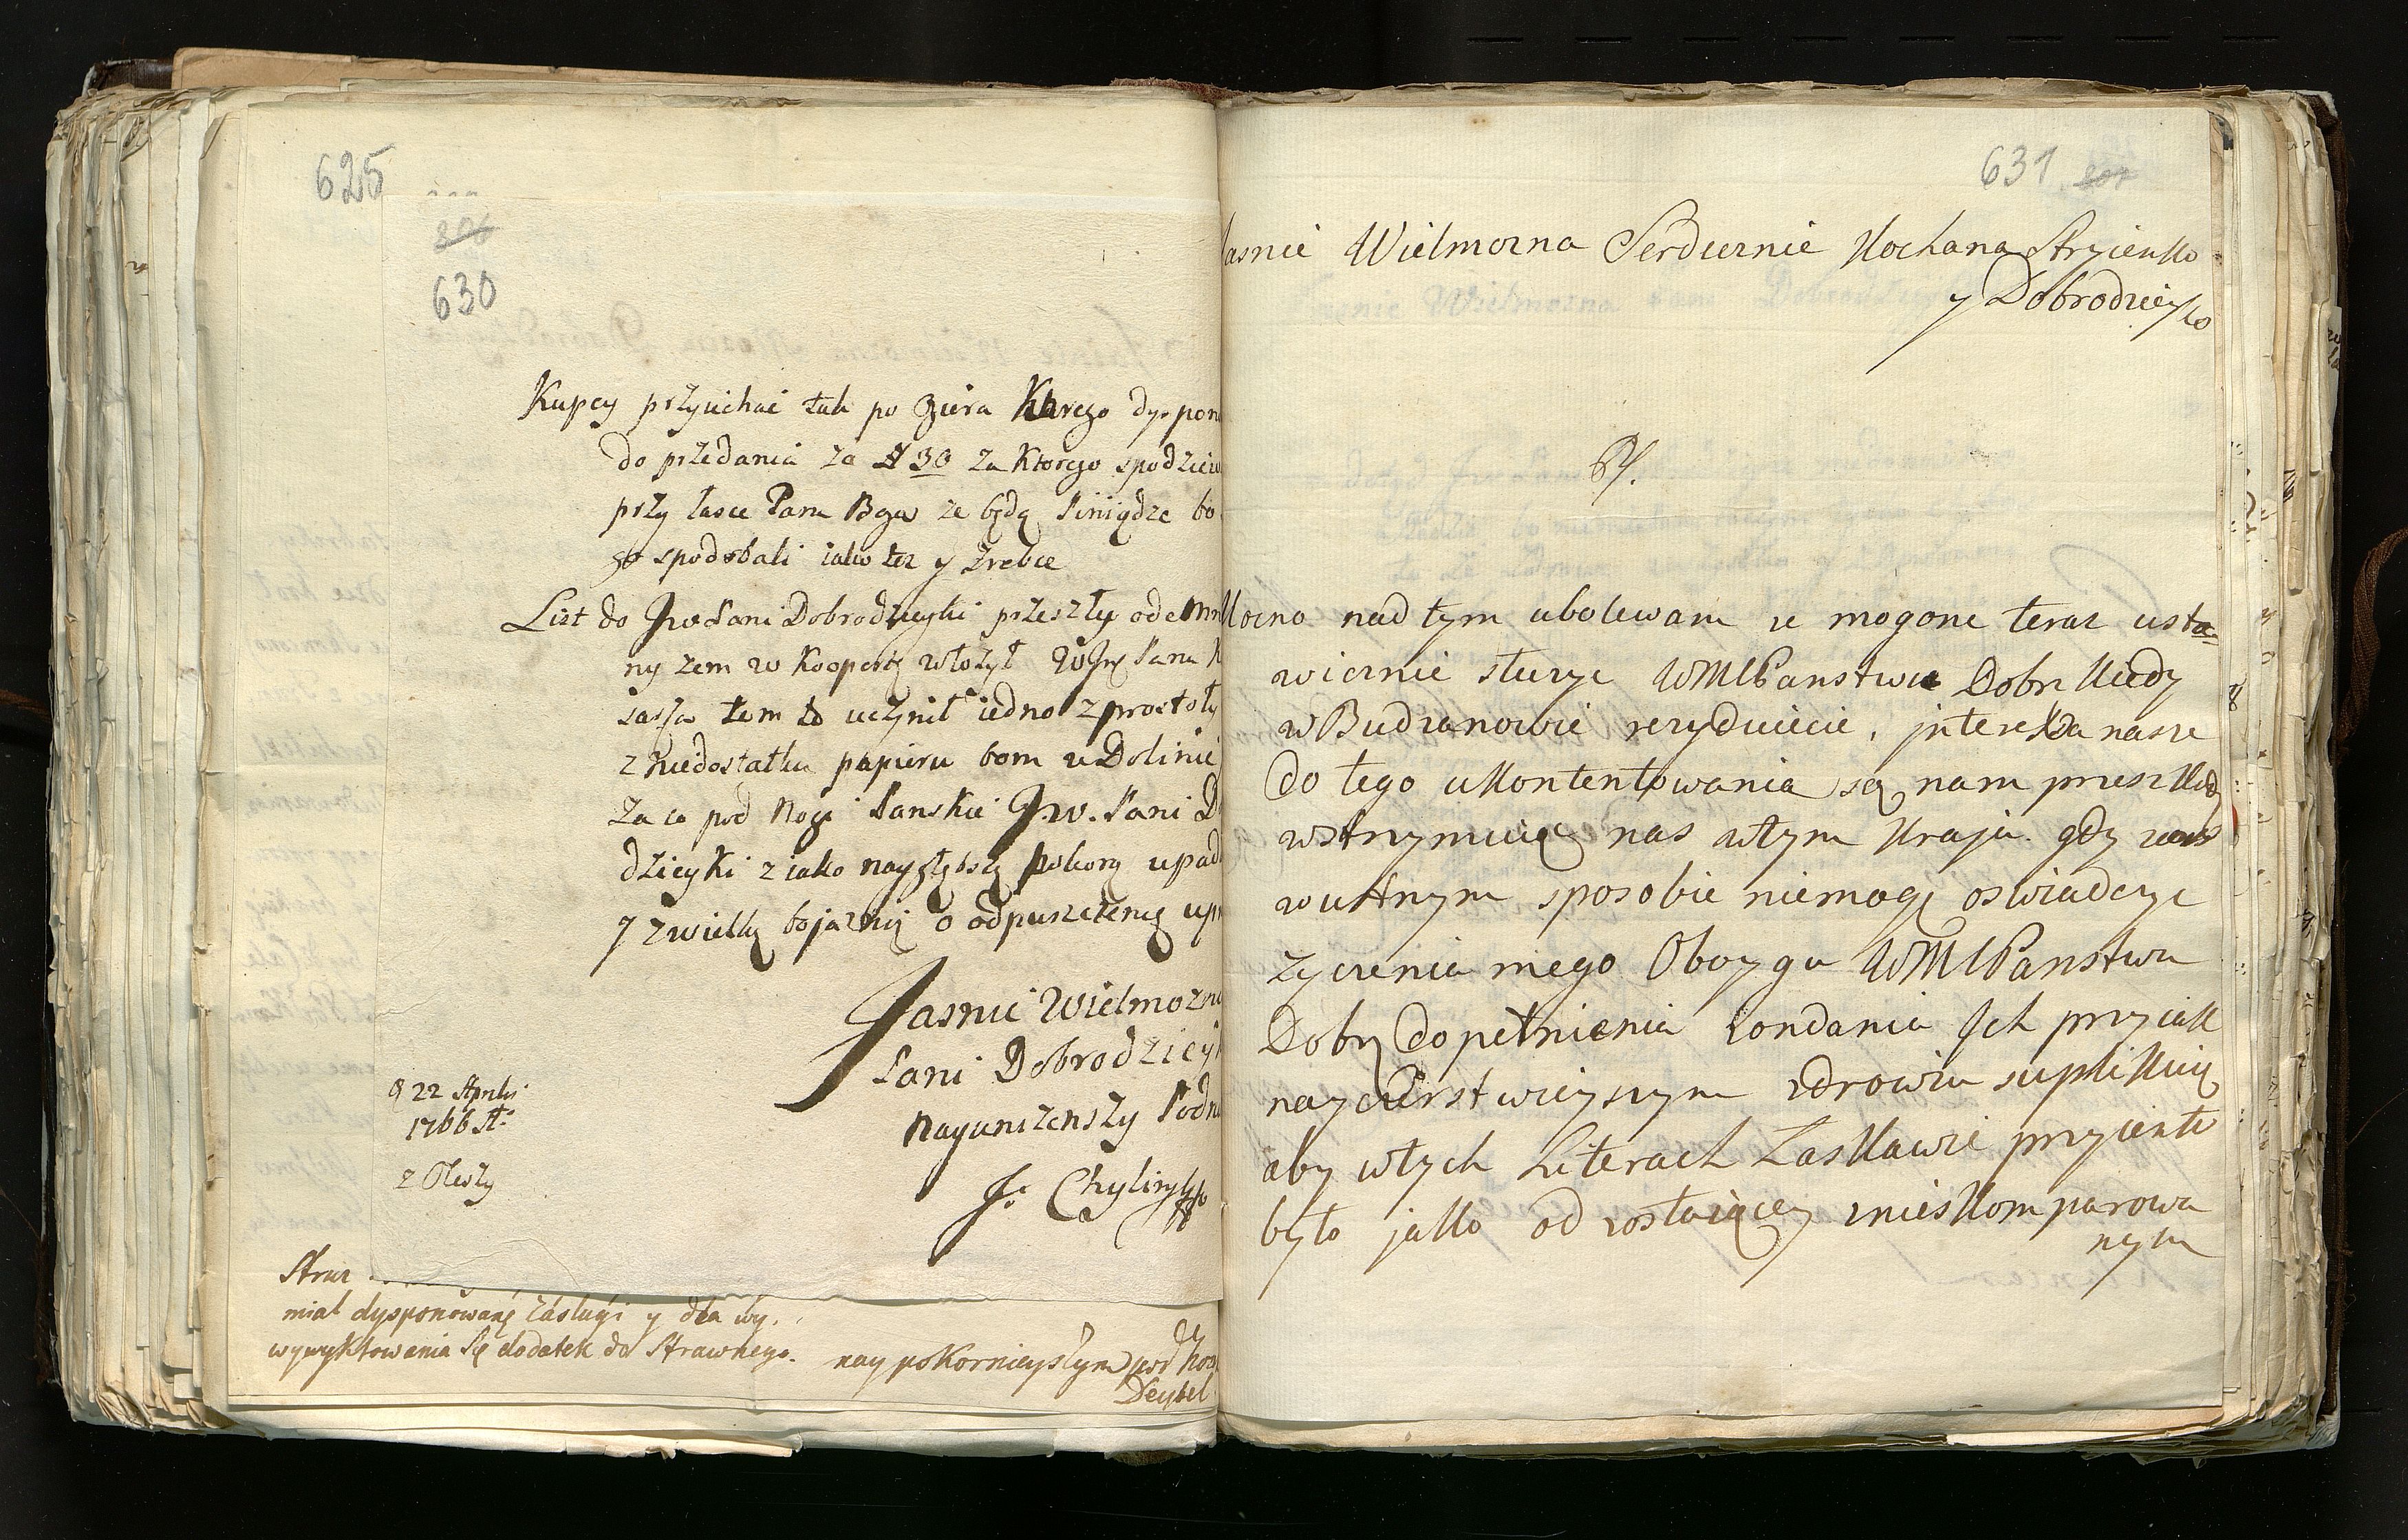 625
306
630
Kupcy przyichać tak po Giera Karego dyspon
do przedania za # 30 za Ktorego spodziew
przy łasce Pana Boga że będą Piniądze bo
go spodobali iako tez y zrebce
List do Jw Pani Dobrodzieyki przeszły odemn
ny zem w Koopertę włożył WJm Pana
sassa tem to uczynił iedno z prostoty
z niedostatku papieru bom w Dolinie
za co pod Nogi Panskie J.w. Pani D
dzieyki z iako nayglębszą pokorą upad
y z wielką bojaznią o odpuszczenię upr
Jasnie Wielmozn
Pani Dobrodziey
Nayunizenszy Podn
J: Chylinsk
d 22 Aprilis
1766 A:
z Oleszy
miał dysponowanę zasługi y dla wy.
wywyktowania Się dodatek do Strawnego.
naypokornieyszym pod
Deybel
631
307
Jasnie Wielmozna Serdecznie Kochana Stryienko
y Dobrodzieyko
Mocno nad tym ubolewam ze mogone teraz usta
wicznie słuzyc WMWPanstwu Dobr Kiedy
w Budzanowie rezyduiecie, jnteressa nasze
do tego ukontentowania są nam przeszkodą
wstrzymuią nas w tym Kraju. gdy zas
w ustnym sposobie niemogę oswiadczyc
zyczenia mego Oboyga WMWPanstwu
Dobr dopełnienia zondania Jch przy iak
nayczerstwieyszym zdrowiu suplikuię
aby w tych Literach Łaskawie przyiente
było jako od zostaiącey znieskomparowa
nym